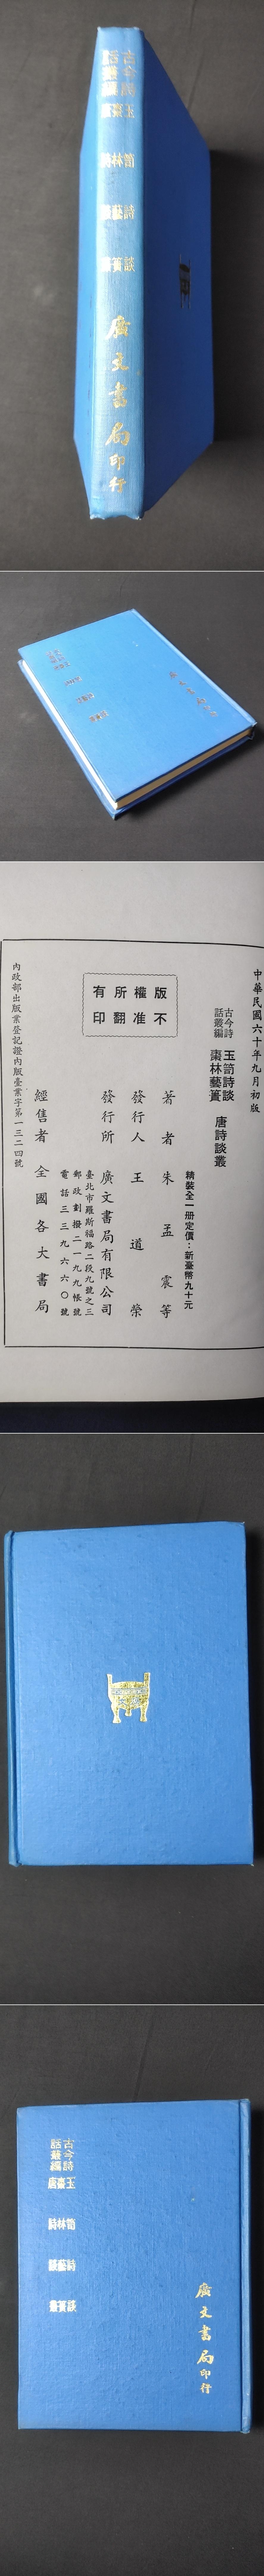 古今詩
話叢編
玉笥詩談
棗林藝簣
唐詩談叢
廣文書局印行
中華民國六十年九月初版
古今詩
話叢編
玉笥詩談
棗林藝簣
唐詩談叢
精裝全一册定價：新臺幣九十元
版權所有
不准翻印
著者 朱孟震等
發行人 王道榮
發行所 廣文書局有限公司
臺北市羅斯福路二段九號之三
郵政劃撥二一九九帳號
電話三三九六六〇號
經售者 全國各大書局
內政部出版業登記證內版臺業字第一三二四號
古今詩
話叢編
玉笥詩談
棗林藝簣
唐詩談叢
廣文書局印行